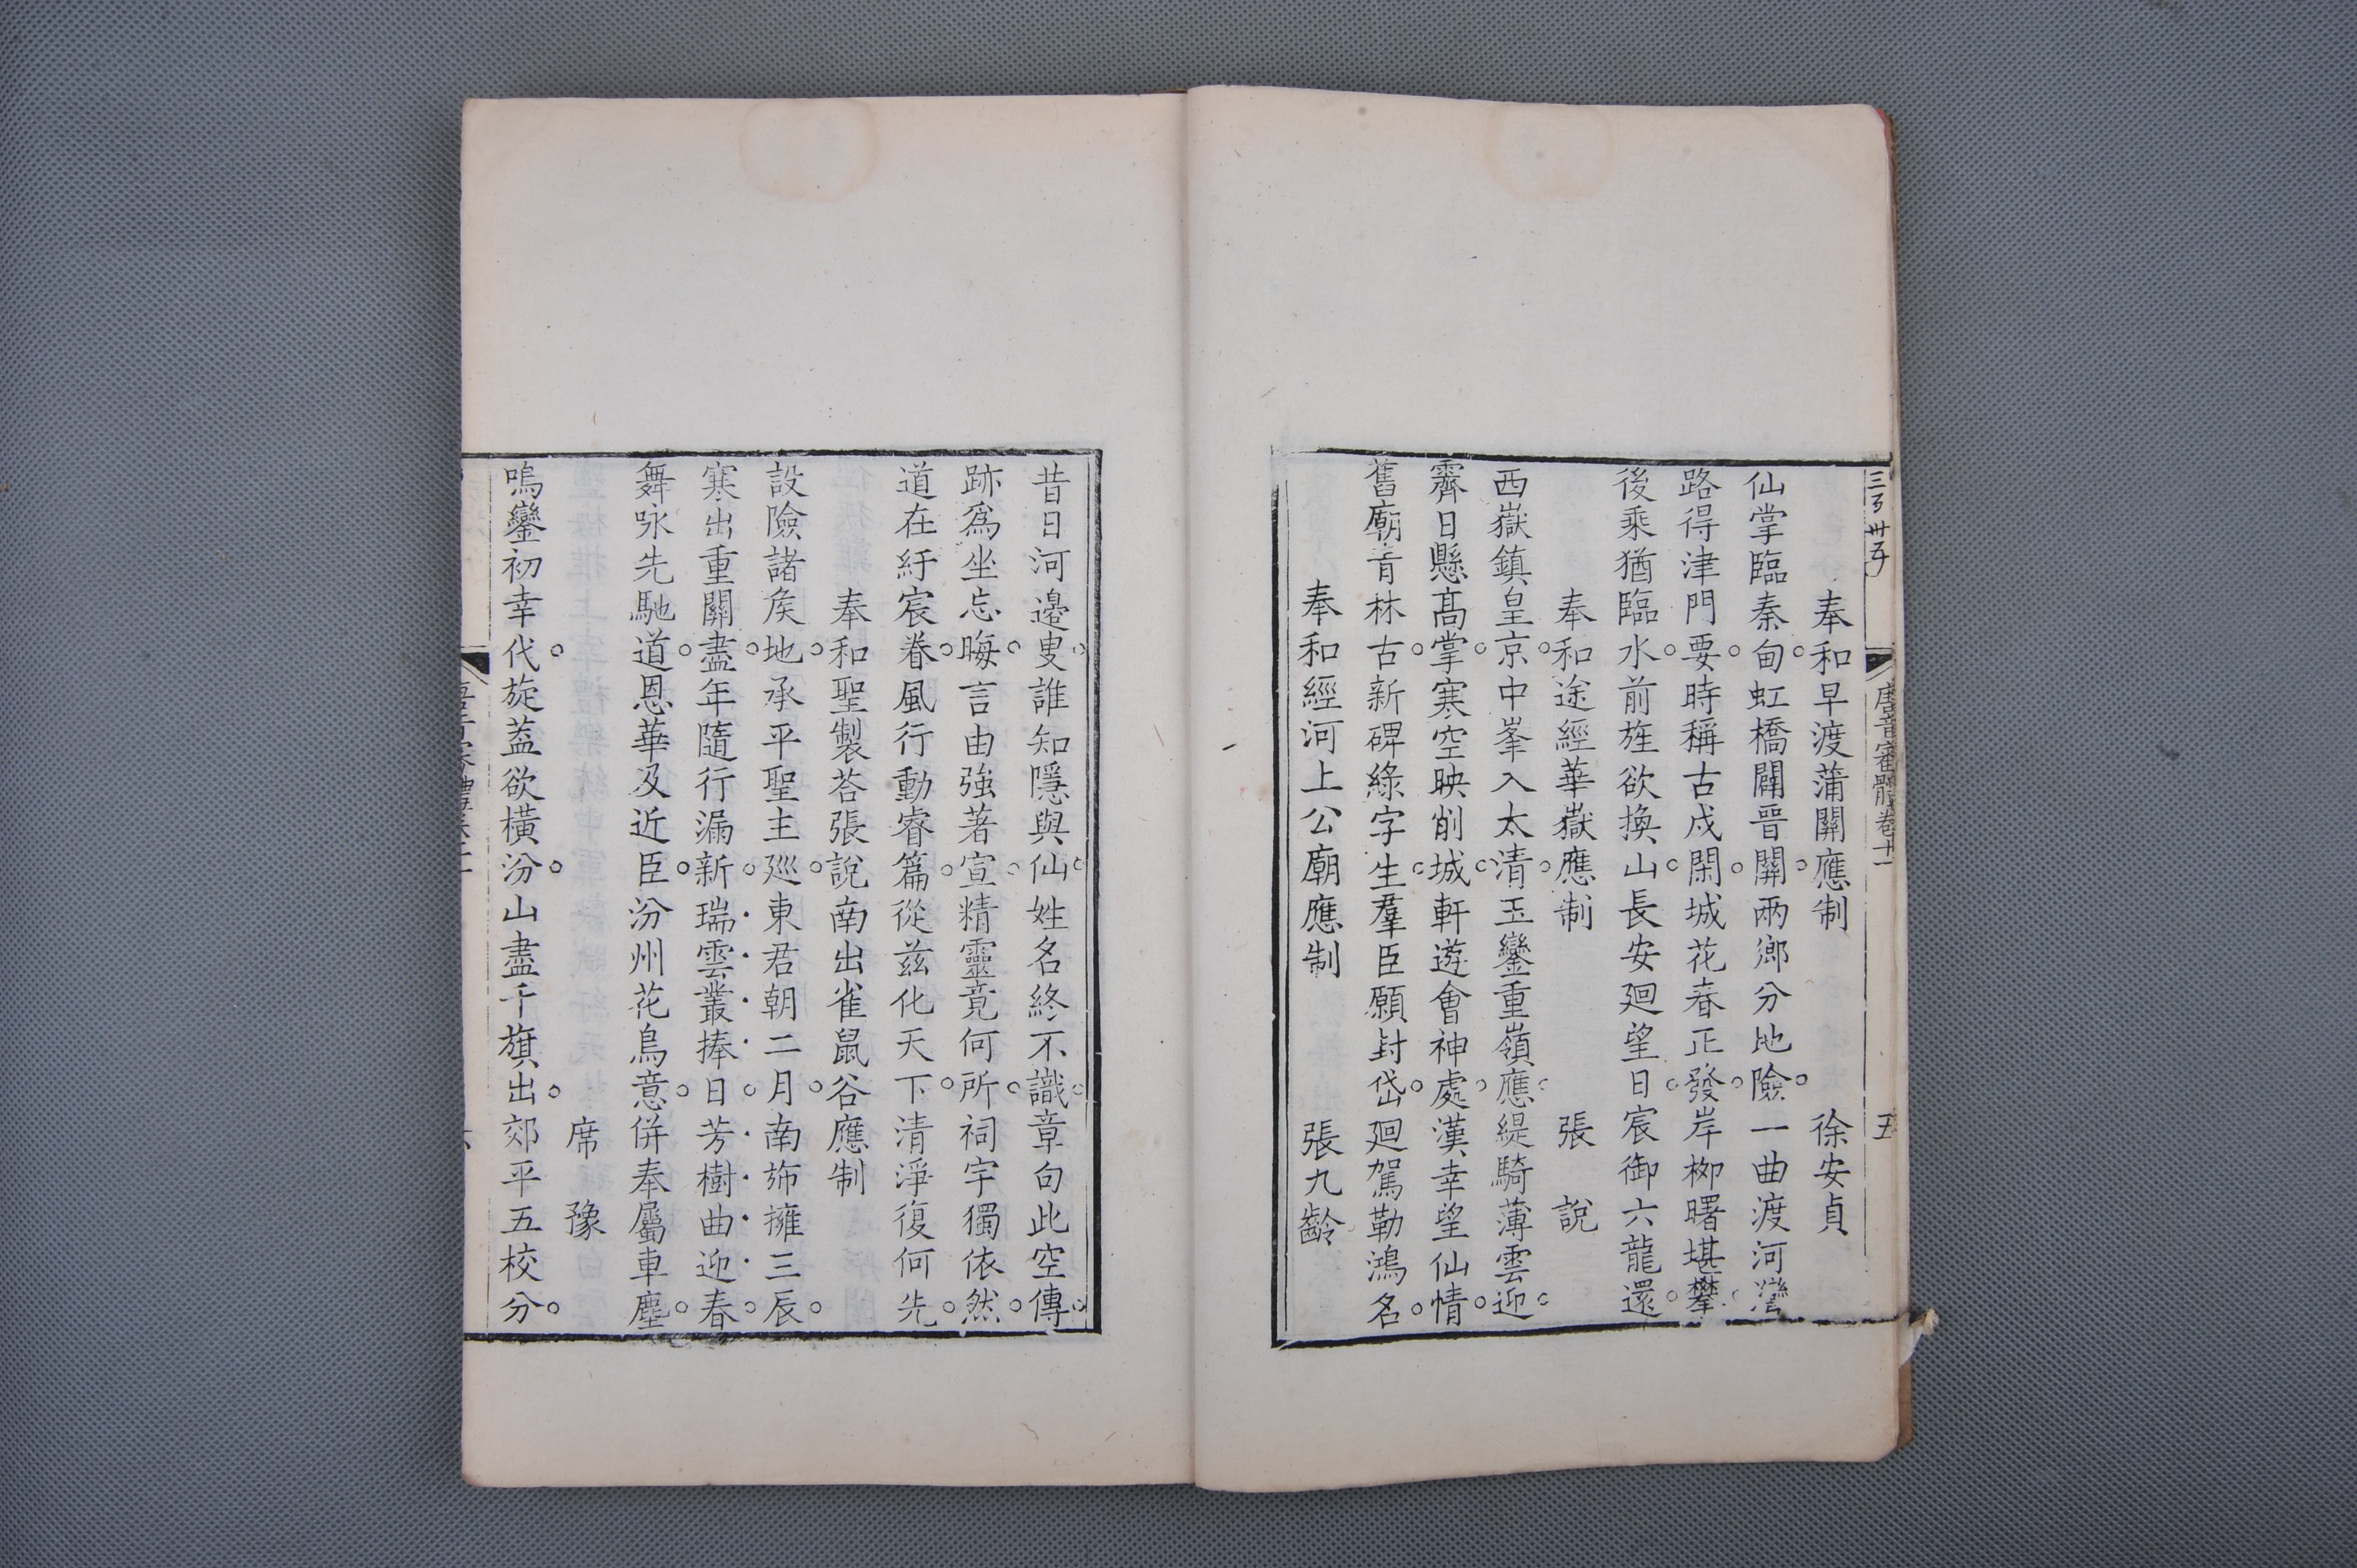 唐音審體卷十一
五
奉和早渡蒲關應制 徐安貞
仙掌臨秦甸虹橋闢晉關兩鄉分地險一曲渡河灣
路得津門要時稱古戍閑城花春正發岸柳曙堪攀
後乘猶臨水前旌欲換山長安迴望日宸御六龍還
奉和途經華嶽應制 張說
西嶽鎮皇京中峯入太清玉鑾重嶺應緹騎薄雲迎
霽日懸高掌寒空映削城軒遊會神處漢幸望仙情
舊廟青林古新碑綠字生羣臣願封岱迴駕勒鴻名
奉和經河上公廟應制 張九齡
昔日河邊叟誰知隱與仙姓名終不識章句此空傳
跡爲坐忘晦言由強著宣精靈竟何所祠宇獨依然
道在紆宸眷風行動睿篇從茲化天下清淨復何先
奉和聖製荅張說南出雀鼠谷應制
席豫
設險諸矦地承平聖主巡東君朝二月南斾擁三辰
寒出重關盡年隨行漏新瑞雲叢捧日芳樹曲迎春
舞咏先馳道恩華及近臣汾州花鳥意併奉屬車塵
鳴鑾初幸代旋蓋欲橫汾山盡千旗出郊平五校分